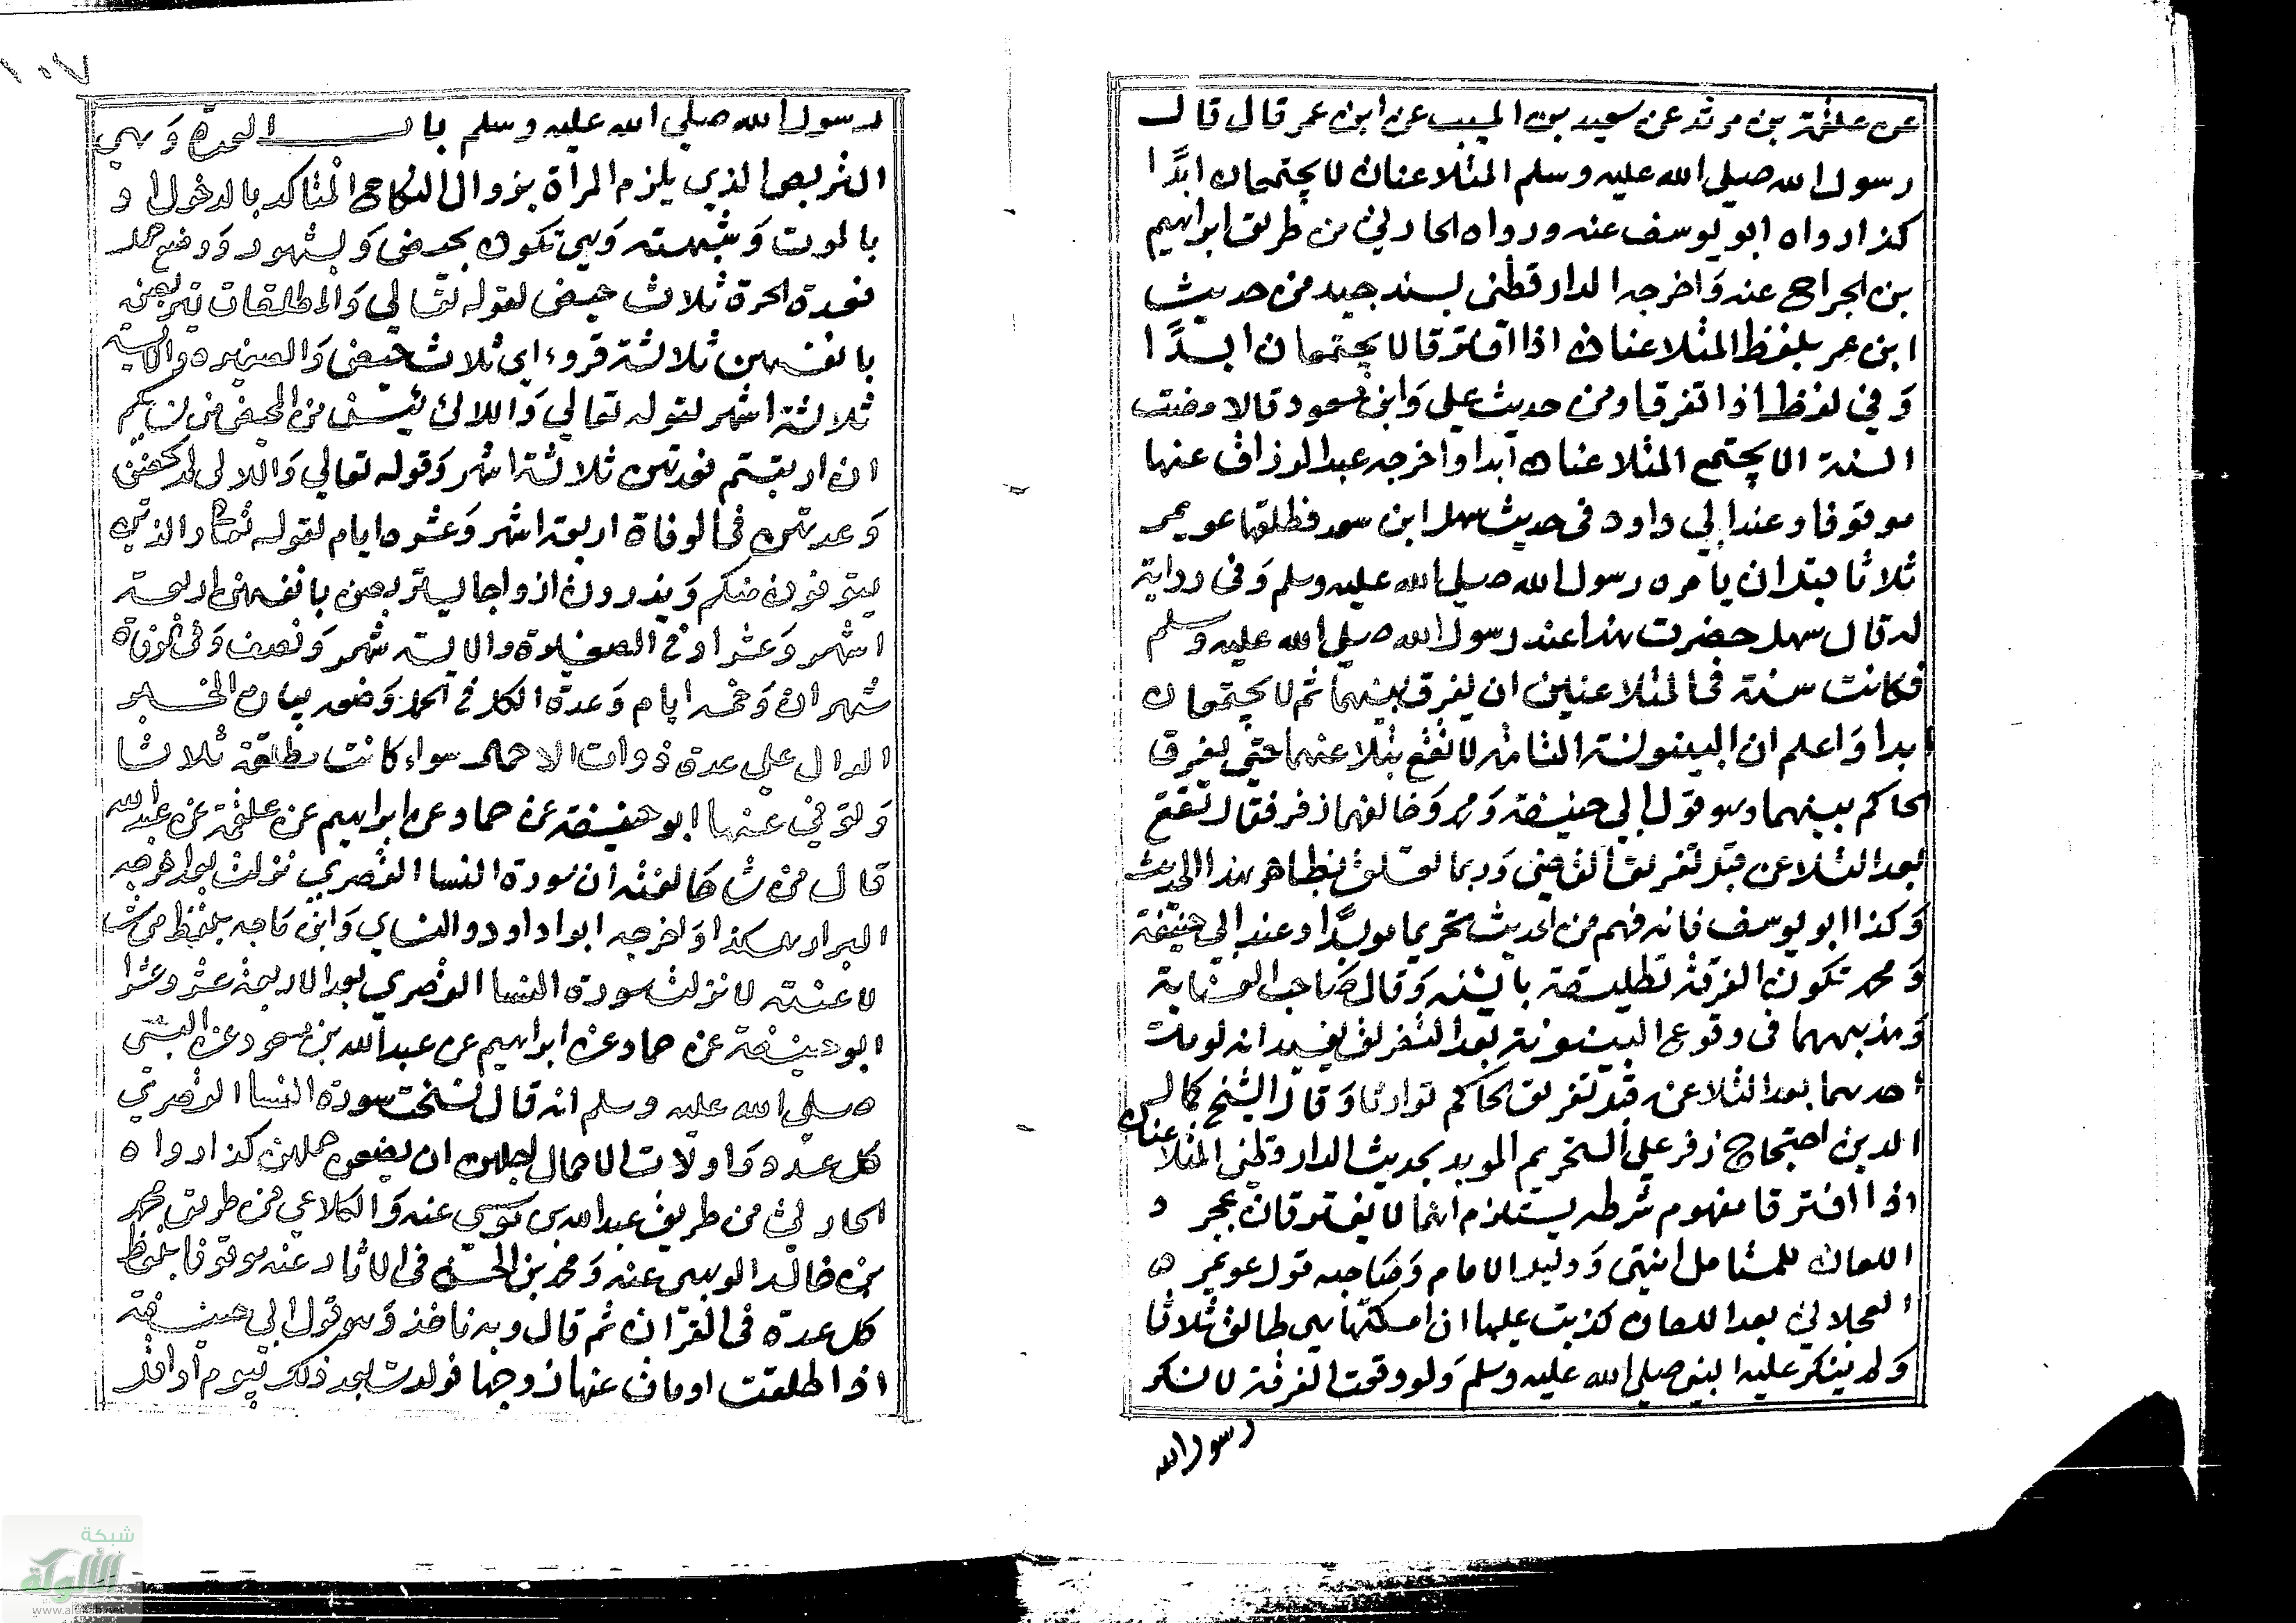 عن علقمة بن مرثد عن سعيد بن المسيب عن ابن عمر قال قال
رسول الله صلي الله عليه وسلم المتلاعنان لا يجتمعان ابدًا
كذا رواه ابو يوسف عنه ورواه الحارثي من طريق ابراهيم
بن الجراح عنه وَاخرجه الدارقطني بسند جيد من حديث
ابن عمر بلفظ المتلاعنان اذا افترقا لا يجتمعان ابدًا
وَفي لفظ اذا تفرقا ومن حديث علي وَابن مسعود قالا مضت
السنة الا يجتمع المتلاعنان ابدا واخرجه عبد الرزاق عنهما
موقوفا وعند ابي داود في حديث سهل ابن سعد فطلقها عويمر
ثلاثا قبل ان يأمره رسول الله صلي الله عليه وسلم وَفي رواية
له قال سهل حضرت هذا عند رسول الله صلي الله عليه وسلم
فكانت سنة في المتلاعنين ان يفرق بينهما ثم لا يجتمعان
ابدا وَاعلم ان البينونة الثابتة لا تقع بتلاعنهما حتى يفرق
الحاكم بينهما وهو قول ابي حنيفة وَمحمد وَخالفهما زفر فقال تقع
بعد التلاعن قبل تفريق القاضي وَربما تعلق بظاهر هذا الحديث
وَكذا ابو يوسف فانه فهم من الحديث تحريما مؤبدًا وعند ابي حنيفة
وَمحمد تكون الفرقة تطليقة بائنة وَقال صاحب العناية
وَمذهبهما في وقوع البينونة بعد التفريق يفيد انه لو مات
احدهما بعد التلاعن قبل تفريق الحاكم توارثا وَقال الشيخ كمال
الدين احتجاج زفر علي التحريم المؤبد بحديث الدارقطني المتلاعنان
اذا افترقا مفهوم شرطه يستلزم انهما لا يفترقان بمجرد
اللعان للمتامل انتهى وَدليل الامام وَصاحبه قول عويمر
العجلاني بعد اللعان كذبت عليها ان امسكتها هي طالق ثلاثا
وَلم ينكر عليه النبي صلي الله عليه وسلم وَلو وقعت الفرقة لانكر
رسول الله
١٠٧
رسول الله صلي الله عليه وسلم بـاب العدة وَهي
التربص الذي يلزم المرأة بزوال النكاح المتأكد بالدخول او
بالموت وَشبهته وَهي تكون بحيض وَبشهور وَوضع حمل
فعدة الحرة ثلاث حيض لقوله تعالي وَالمطلقات يتربصن
بانفسهن ثلاثة قروء اي ثلاث حيض وَالصغيرة والايسة
ثلاثة اشهر لقوله تعالي وَاللائ يئسن من المحيض من نسائكم
ان ارتبتم فعدتهن ثلاثة اشهر وَقوله تعالي وَاللائي لم يحضن
وَعدتهن في الوفاة اربعة اشهر وَعشرة ايام لقوله تعالي والذين
يتوفون منكم وَيذرون ازواجا يتربصن بانفسهن اربعة
اشهر وَعشرا وفي الصغيرة والايسة شهر وَنصف وَفي الوفاة
شهران وَخمسة ايام وَعدة الكل في الحمل وَضعه بيان الخبر
الدال علي عدة ذوات الاحمال سواء كانت مطلقة ثلاثا
وَتوفي عنها ابو حنيفة عن حماد عن ابراهيم عن علقمة عن عبد الله
قال من شا حالفته ان سورة النسا القصري نزلت بعد اخرجه
البزار هكذا وَاخرجه ابوا داود والنساي وَابن ماجه بلفظ من شا
لاعنته لانزلت سورة النسا القصري بعد الاربعة عشر وعشرا
ابو حنيفة عن حماد عن ابراهيم عن عبد الله بن مسعود عن النبي
صلي الله عليه وسلم انه قال نسخت سورة النسا القصري
كل عدة وَاولات الاحمال اجلهن ان يضعن حملهن كذا رواه
الحارثي من طريق عبد الله بن موسي عنه وَالكلاعي من طريق محمد
بن خالد الوهبي عنه وَمحمد بن الحسن في الاثار عنه موقوفا بلفظ
كل عدة في القران ثم قال وبه ناخذ وَهو قول ابي حنيفة
اذا طلقت او مات عنها زوجها فولدت بعد ذلك بيوم او اقل
شبكة
الألوكة
www.alukah.net